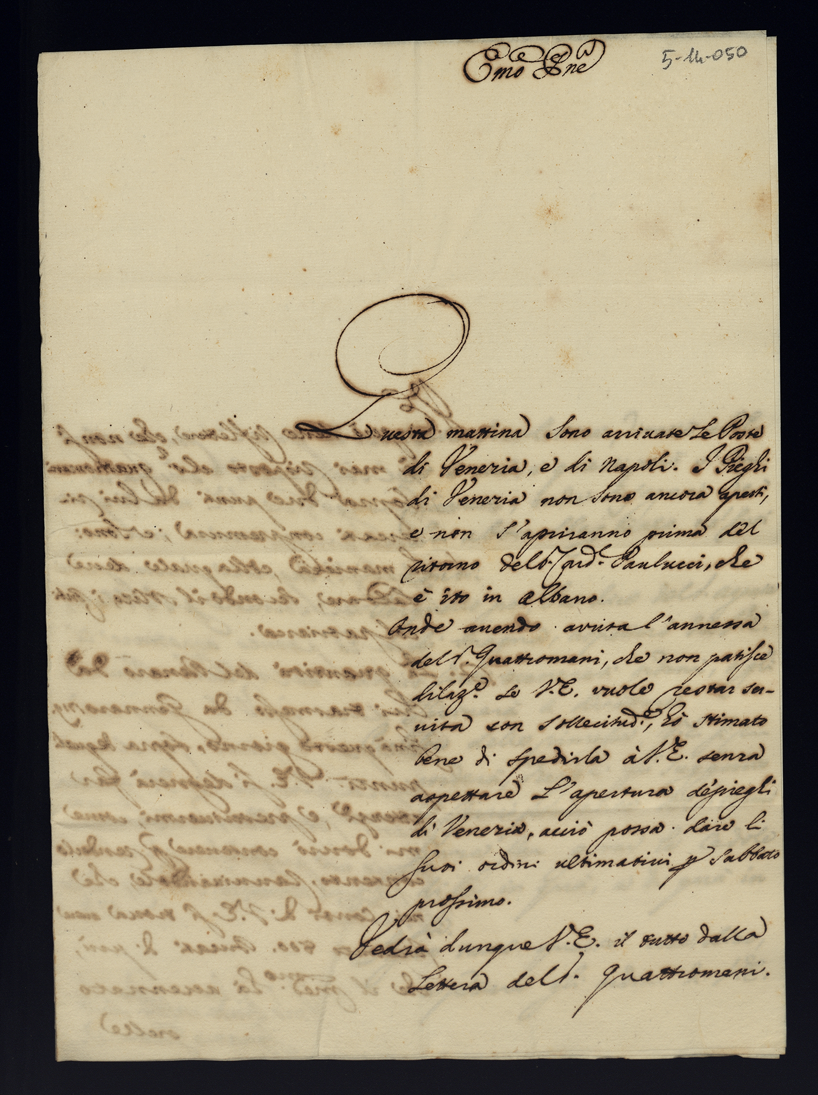 5-14-050
Emo Pne
Questa mattina sono arrivate Le Poste
di Venezia, e di Napoli. I Pieghi
di Venezia non sono ancora aperti,
e non s'apriranno prima del
ritorno del Sr. Card.l Paulucci, che
è ito in Albano.
Onde avendo avuta l'annessa
del Sr. Quattromani, che non patisce
dilaz.e se V.E. vuole restar ser-
vita con sollecitud.e, hò stimato
bene di spedirla à V.E. senza
aspettare L'apertura de' pieghi
di Venezia, acciò possa dare li
suoi ordini ultimativi p Sabbato
prossimo.
Vedrà dunque V.E. il tutto dalla
Lettera del Sr. Quattromani.